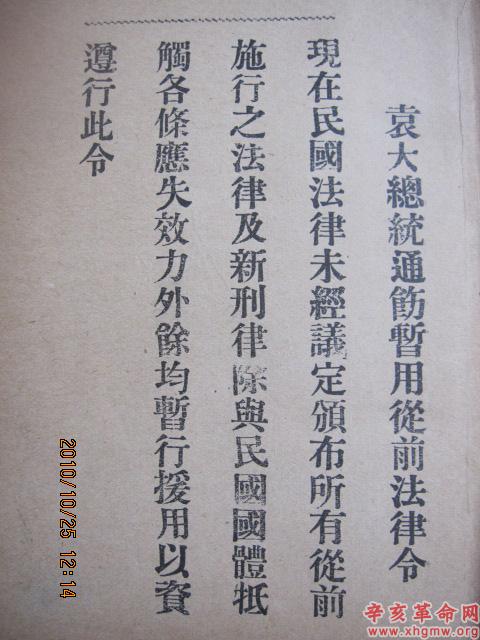 袁大總統通飭暫用從前法律令
現在民國法律未經議定頒布所有從前
施行之法律及新刑律除與民國國體抵
觸各條應失效力外餘均暫行援用以資
遵行此令
2010/10/25 12:14
辛亥革命网
www.xhgmw.org